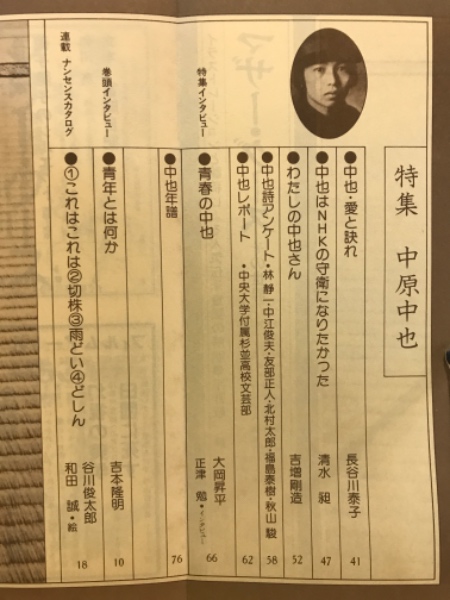 特集 中原中也
●中也・愛と訣れ 長谷川泰子 41
●中也はNHKの守衛になりたかつた 清水 昶 47
●わたしの中也さん 吉増剛造 52
●中也詩アンケート・林 静一・中江俊夫・友部正人・北村太郎・福島泰樹・秋山 駿 58
●中也レポート ・中央大学付属杉並高校文芸部 62
特集インタビュー
●青春の中也 大岡昇平 66
正津 勉・インタビュー
●中也年譜 76
巻頭インタビュー
●青年とは何か 吉本隆明 10
連載 ナンセンスカタログ
●①これはこれは②切株③雨どい④どしん 谷川俊太郎 18
和田 誠・絵